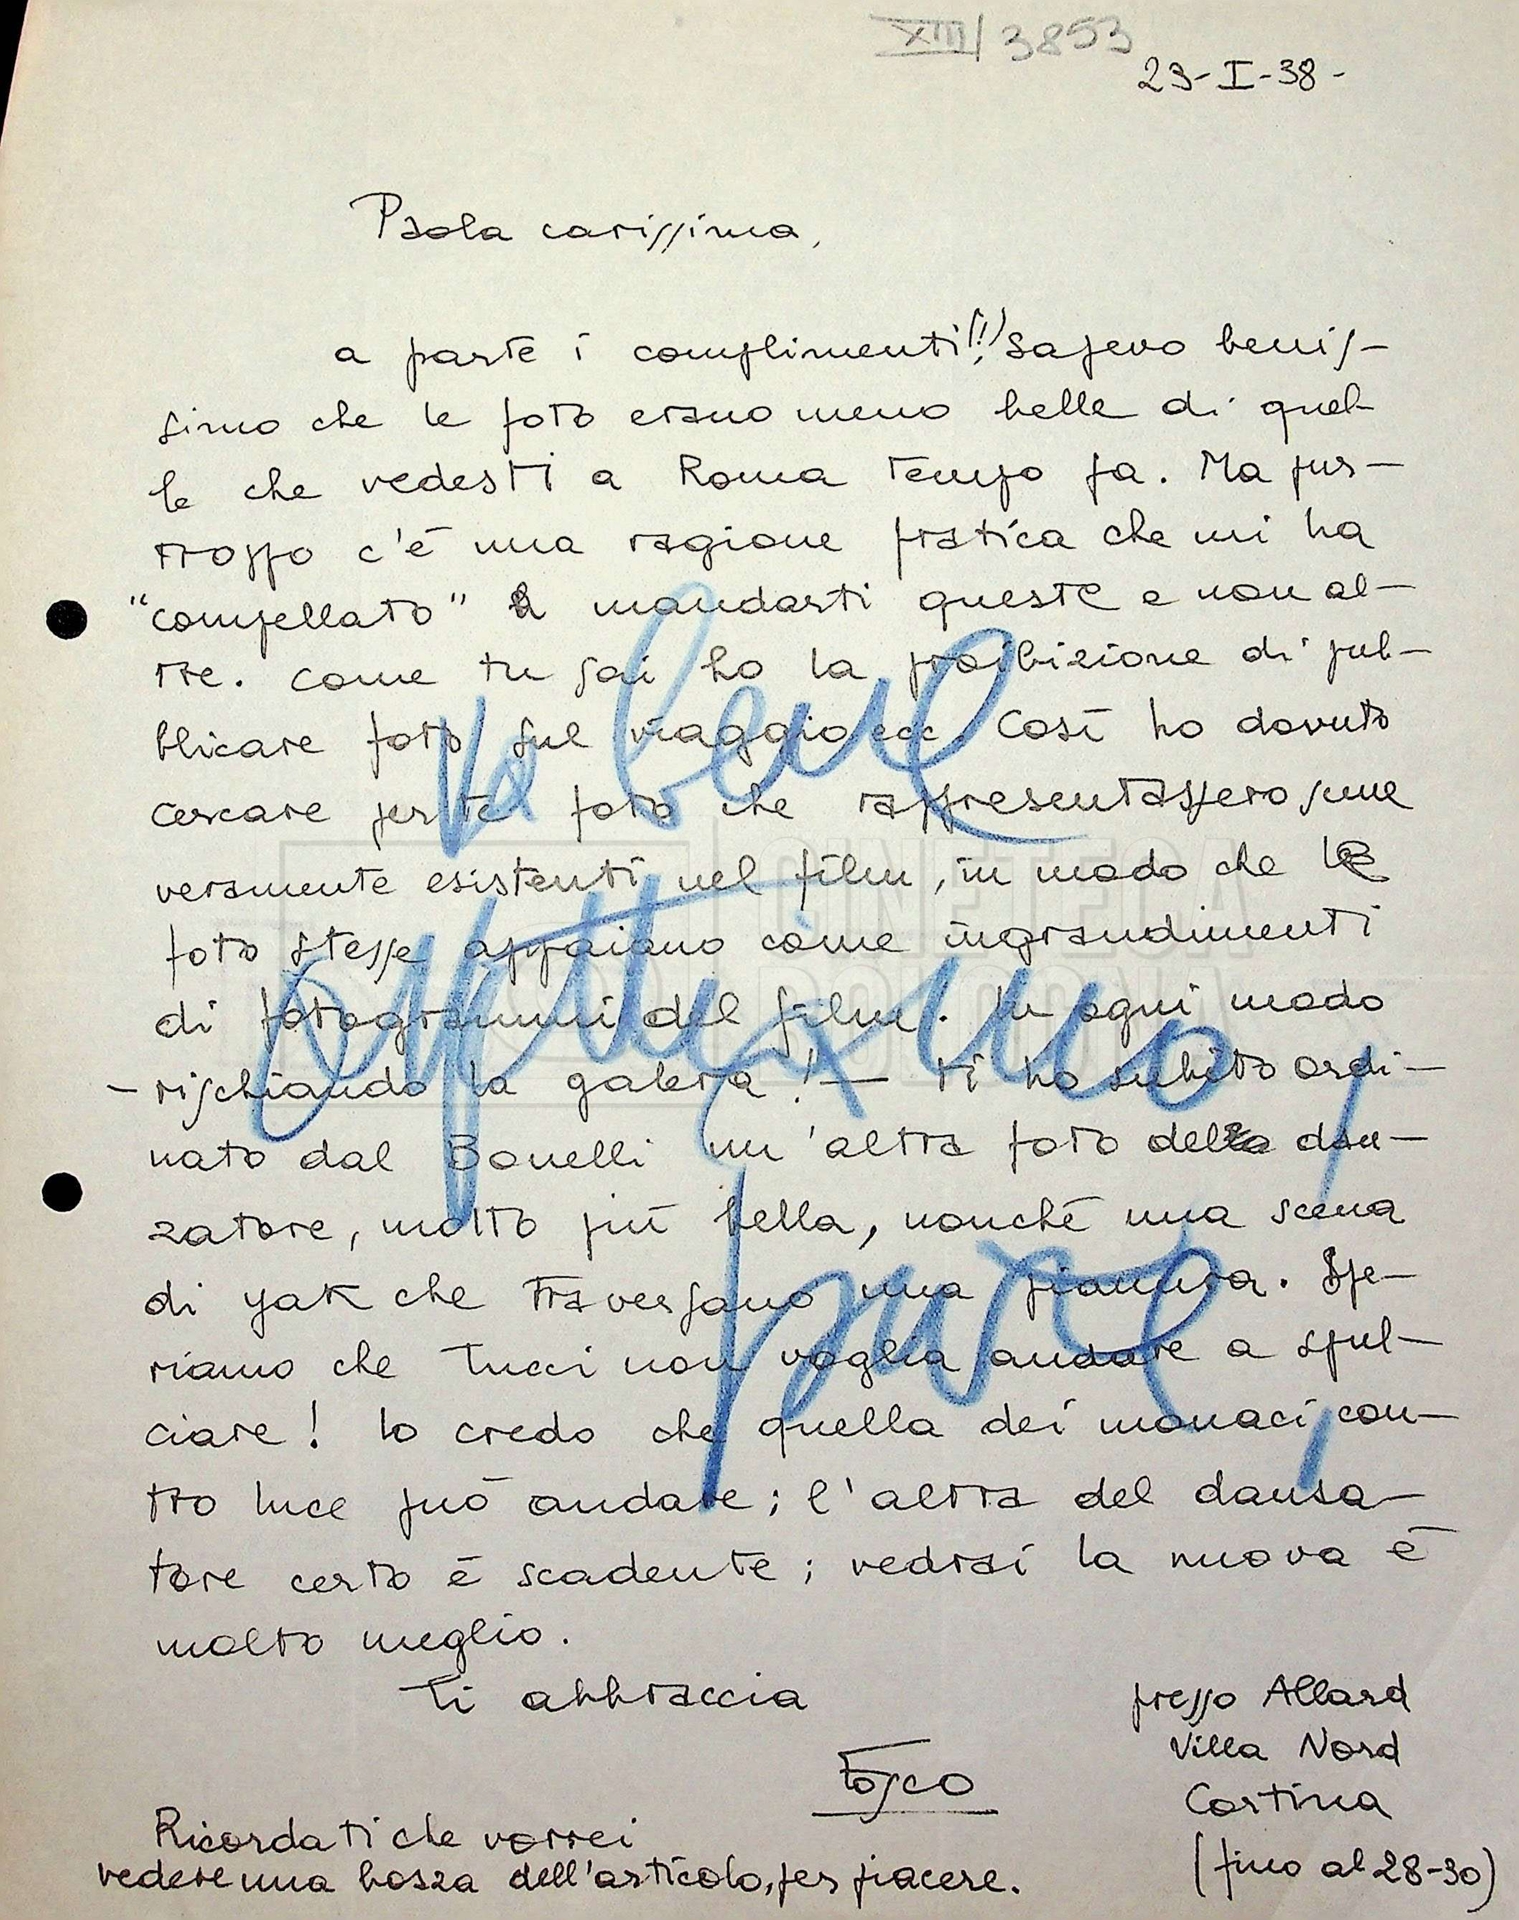 XIII/3853
23-I-38-
Paola carissima,
a parte i complimenti(!!), sapevo benis-
simo che le foto erano meno belle di quel-
le che vedesti a Roma tempo fa. Ma pur-
troppo c'è una ragione pratica che mi ha
"compellato" a mandarti queste e non al-
tre. Come tu sai ho la proibizione di pub-
blicare foto sul viaggio ecc. Così ho dovuto
cercare per te foto che rappresentassero scene
veramente esistenti nel film, in modo che le
foto stesse appaiano come ingrandimenti
di fotogrammi del film. In ogni modo
- rischiando la galera! - ti ho subito ordi-
nato dal Bonelli un'altra foto del dan-
zatore, molto più bella, nonchè una scena
di yak che traversano una pianura. Spe-
riamo che Tucci non voglia andare a spul-
ciare! Io credo che quella dei monaci con-
tro luce può andare; l'altra del danza-
tore certo è scadente; vedrai la nuova è
molto meglio.
Ti abbraccia
Fosco
presso Allard
Villa Nord
Cortina
(fino al 28-30)
Ricordati che vorrei
vedere una bozza dell'articolo, per piacere.
Va bene
CINETECA
BOLOGNA